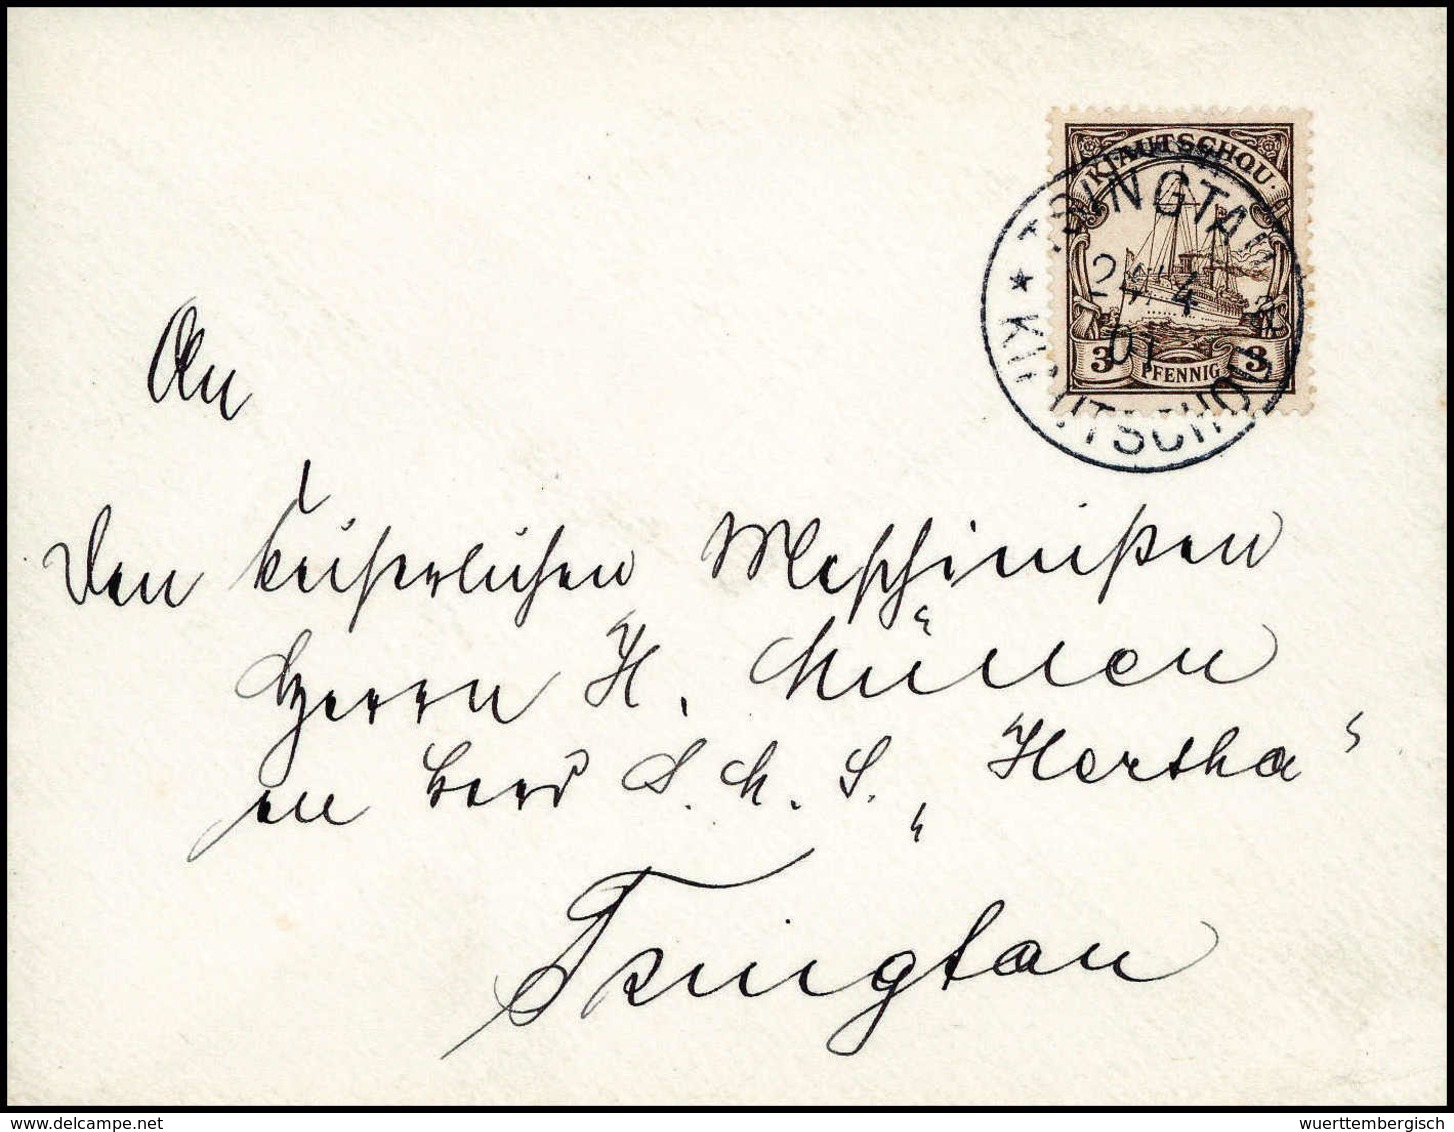 KIAUTSCHOU
3 PFENNIG 3
TSINGTAU
24/4
01
* KIAUTSCHOU *
An
den Kaiserlichen Maschinisten
Herrn H. Müller
an Bord S. M. S. „Hertha“
Tsingtau
wuerttembergisch